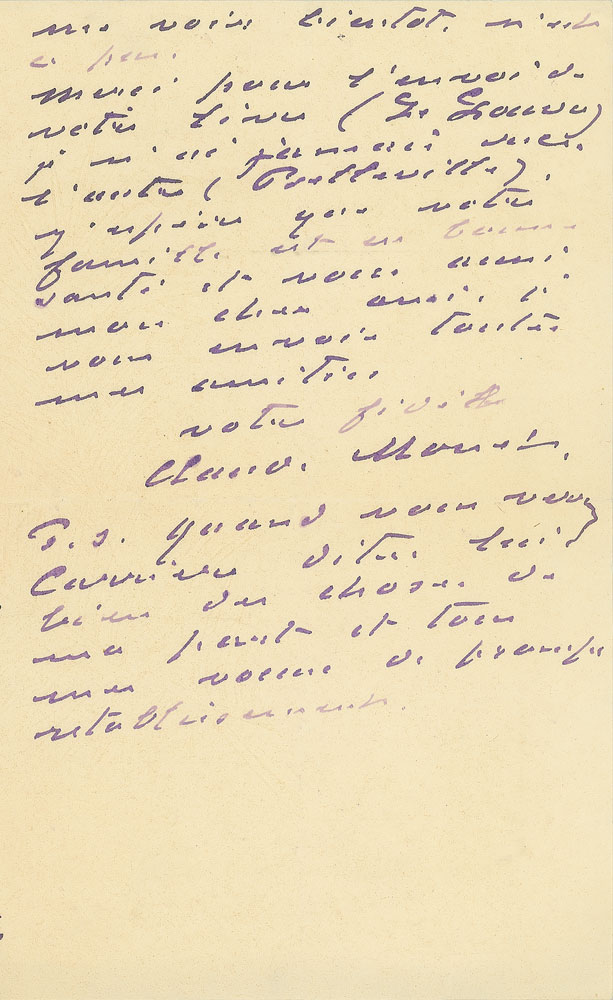 me voir bientôt, n'est
ce pas.
Merci pour l'envoi de
votre livre (Le Louvre)
je n'ai jamais reçu
l'autre ( ).
J'espère que votre
famille est en bonne
santé et vous aussi
mon cher ami, je
vous envoie toutes
mes amitiés
votre fidèle
Claude Monet.
P.S. Quand vous verrez
Carrière dites lui
bien des choses de
ma part et tous
mes voeux de prompt
rétablissement.